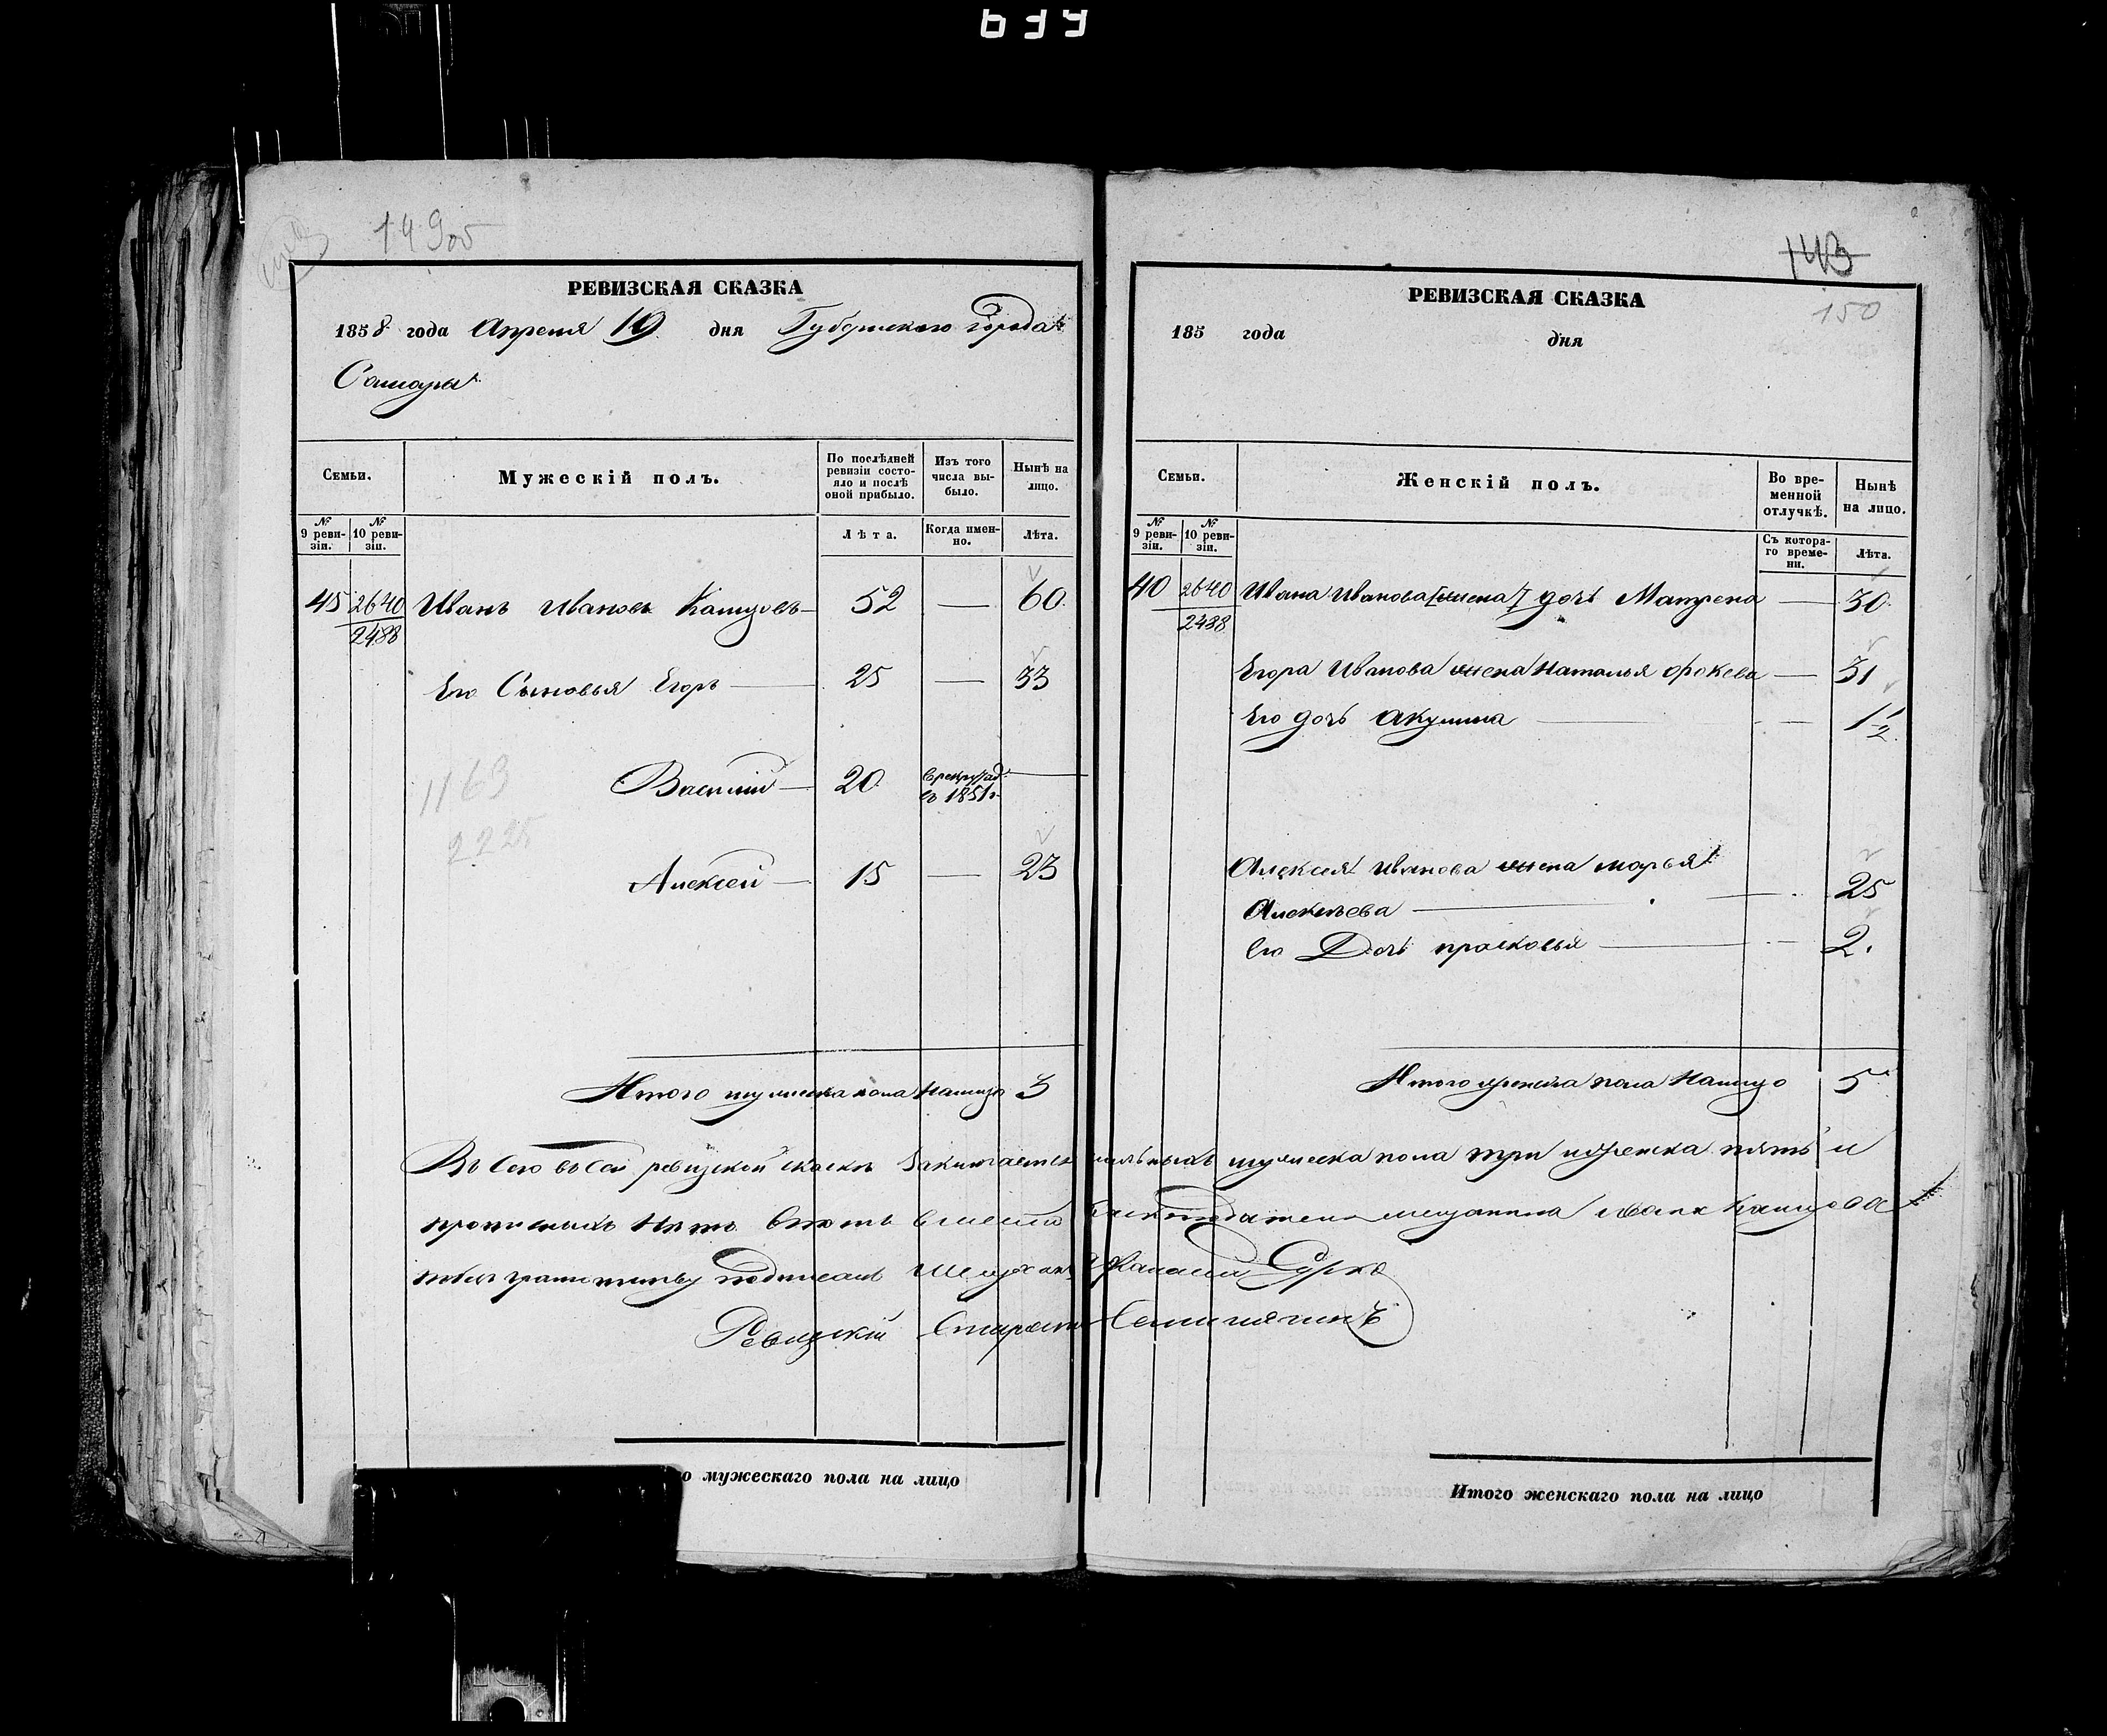 639
149 об
РЕВИЗСКАЯ СКАЗКА
1858 года Апреля 19 дня Губернского Города
Самары
Семьи.
Мужескій полъ.
По послѣдней ревизіи состо-
яло и послѣ оной прибыло.
Изъ того числа вы-
было.
Нынѣ на лицо.
№ 9 реви-
зіи.
№ 10 реви-
зіи.
Лѣта.
Когда имен-
но.
Лѣта.
45 2640 Иванъ Ивановъ Кашузовъ 52 — 60
2488
Его Сыновья Егоръ 25 — 33
Василій 20 в рекруты отд. въ 1851 г.
1163
2225
Алексей 15 — 23
Итого мужеска пола Налицо 3
143
150
РЕВИЗСКАЯ СКАЗКА
185 года дня
Семьи.
Женскій полъ.
Во вре-
менной отлучкѣ.
Нынѣ на лицо.
№ 9 реви-
зіи.
№ 10 реви-
зіи.
Съ котора-
го време-
ни.
Лѣта.
40 2640 Ивана Иванова [жена] дочь Матрена — 30
2488
Егора Иванова жена Наталья Фокева — 31
Его дочь Акулина — 1 1/2
Алексея Иванова жена Марья
Алексеева 25
Его Дочь Прасковья 2.
Итого женска пола Налицо 5
Въ сей ревизской скаске Заключается мужеска пола три и женска пять и
вместо скаскоподателя мещанина Ивана
подписалъ
Ревизскій Староста
го мужескаго пола на лицо
Итого женскаго пола на лицо